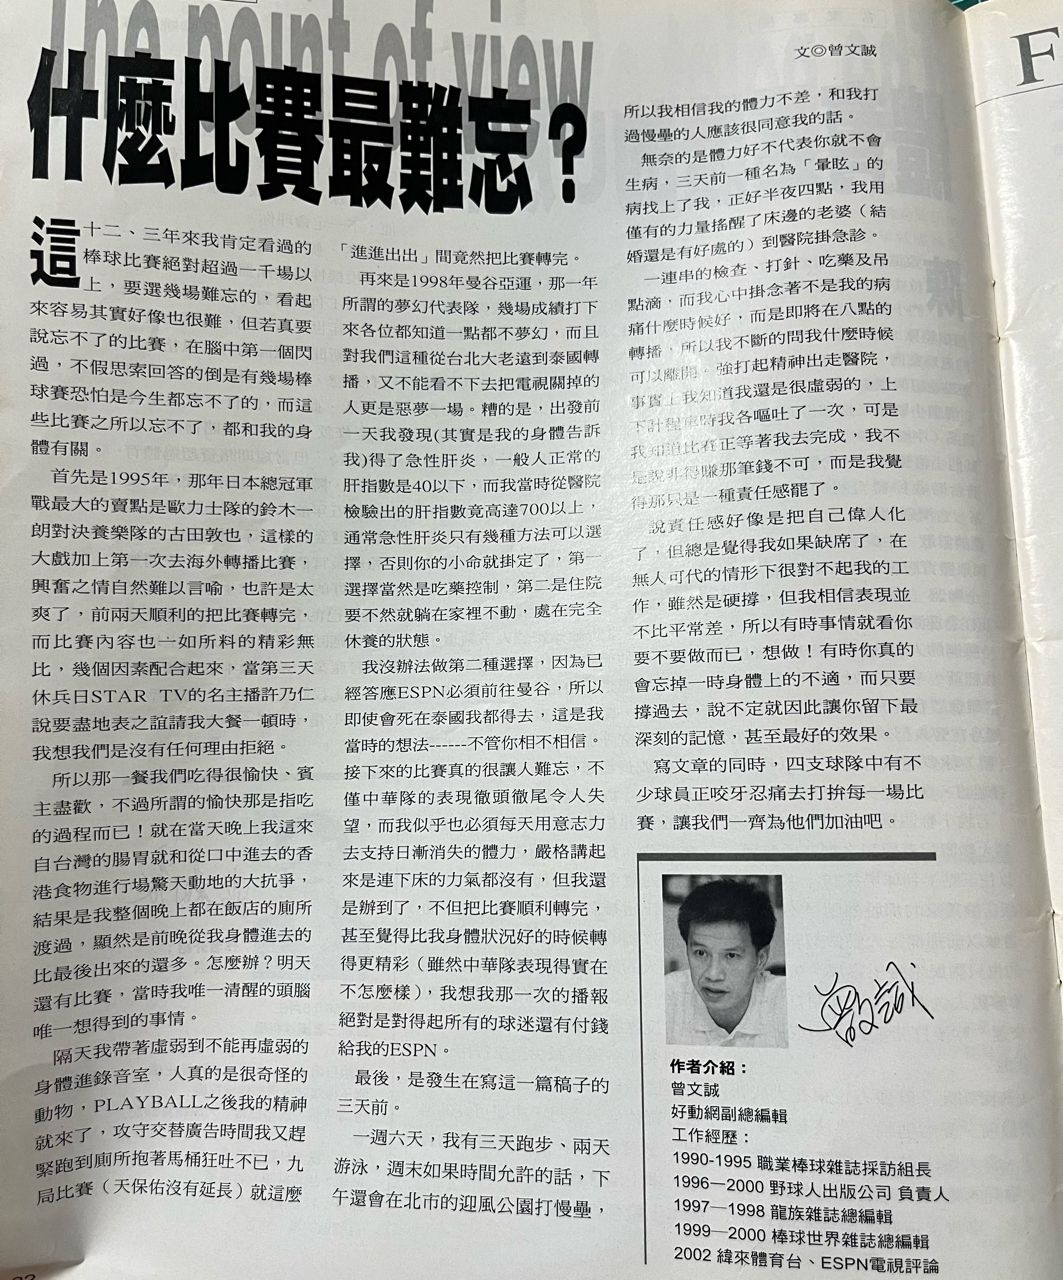 The point of view
什麼比賽最難忘？
文◎曾文誠
這十二、三年來我肯定看過的
棒球比賽絕對超過一千場以
上，要選幾場難忘的，看起
來容易其實好像也很難，但若真要
說忘不了的比賽，在腦中第一個閃
過，不假思索回答的倒是有幾場棒
球賽恐怕是今生都忘不了的，而這
些比賽之所以忘不了，都和我的身
體有關。
首先是1995年，那年日本總冠軍
戰最大的賣點是歐力士隊的鈴木一
朗對決養樂隊的古田敦也，這樣的
大戲加上第一次去海外轉播比賽，
興奮之情自然難以言喻，也許是太
爽了，前兩天順利的把比賽轉完，
而比賽內容也一如所料的精彩無
比，幾個因素配合起來，當第三天
休兵日STAR TV的名主播許乃仁
說要盡地表之誼請我大餐一頓時，
我想我們是沒有任何理由拒絕。
所以那一餐我們吃得很愉快、賓
主盡歡，不過所謂的愉快那是指吃
的過程而已！就在當天晚上我這來
自台灣的腸胃就和從口中進去的香
港食物進行場驚天動地的大抗爭，
結果是我整個晚上都在飯店的廁所
渡過，顯然是前晚從我身體進去的
比最後出來的還多。怎麼辦？明天
還有比賽，當時我唯一清醒的頭腦
唯一想得到的事情。
隔天我帶著虛弱到不能再虛弱的
身體進錄音室，人真的是很奇怪的
動物，PLAYBALL之後我的精神
就來了，攻守交替廣告時間我又趕
緊跑到廁所抱著馬桶狂吐不已，九
局比賽（天保佑沒有延長）就這麼
「進進出出」間竟然把比賽轉完。
再來是1998年曼谷亞運，那一年
所謂的夢幻代表隊，幾場成績打下
來各位都知道一點都不夢幻，而且
對我們這種從台北大老遠到泰國轉
播，又不能看不下去把電視關掉的
人更是惡夢一場。糟的是，出發前
一天我發現(其實是我的身體告訴
我)得了急性肝炎，一般人正常的
肝指數是40以下，而我當時從醫院
檢驗出的肝指數竟高達700以上，
通常急性肝炎只有幾種方法可以選
擇，否則你的小命就掛定了，第一
選擇當然是吃藥控制，第二是住院
要不然就躺在家裡不動，處在完全
休養的狀態。
我沒辦法做第二種選擇，因為已
經答應ESPN必須前往曼谷，所以
即使會死在泰國我都得去，這是我
當時的想法------不管你相不相信。
接下來的比賽真的很讓人難忘，不
僅中華隊的表現徹頭徹尾令人失
望，而我似乎也必須每天用意志力
去支持日漸消失的體力，嚴格講起
來是連下床的力氣都沒有，但我還
是辦到了，不但把比賽順利轉完，
甚至覺得比我身體狀況好的時候轉
得更精彩（雖然中華隊表現得實在
不怎麼樣），我想我那一次的播報
絕對是對得起所有的球迷還有付錢
給我的ESPN。
最後，是發生在寫這一篇稿子的
三天前。
一週六天，我有三天跑步、兩天
游泳，週末如果時間允許的話，下
午還會在北市的迎風公園打慢壘，
所以我相信我的體力不差，和我打
過慢壘的人應該很同意我的話。
無奈的是體力好不代表你就不會
生病，三天前一種名為「暈眩」的
病找上了我，正好半夜四點，我用
僅有的力量搖醒了床邊的老婆（結
婚還是有好處的）到醫院掛急診。
一連串的檢查、打針、吃藥及吊
點滴，而我心中掛念著不是我的病
痛什麼時候好，而是即將在八點的
轉播，所以我不斷的問我什麼時候
可以離開。強打起精神出走醫院，
事實上我知道我還是很虛弱的，上
下計程車時我各嘔吐了一次，可是
我知道比賽正等著我去完成，我不
是說非得賺那筆錢不可，而是我覺
得那只是一種責任感罷了。
說責任感好像是把自己偉人化
了，但總是覺得我如果缺席了，在
無人可代的情形下很對不起我的工
作，雖然是硬撐，但我相信表現並
不比平常差，所以有時事情就看你
要不要做而已，想做！有時你真的
會忘掉一時身體上的不適，而只要
撐過去，說不定就因此讓你留下最
深刻的記憶，甚至最好的效果。
寫文章的同時，四支球隊中有不
少球員正咬牙忍痛去打拚每一場比
賽，讓我們一齊為他們加油吧。
作者介紹：
曾文誠
好動網副總編輯
工作經歷：
1990-1995 職業棒球雜誌採訪組長
1996—2000 野球人出版公司 負責人
1997—1998 龍族雜誌總編輯
1999—2000 棒球世界雜誌總編輯
2002 緯來體育台、ESPN電視評論
F